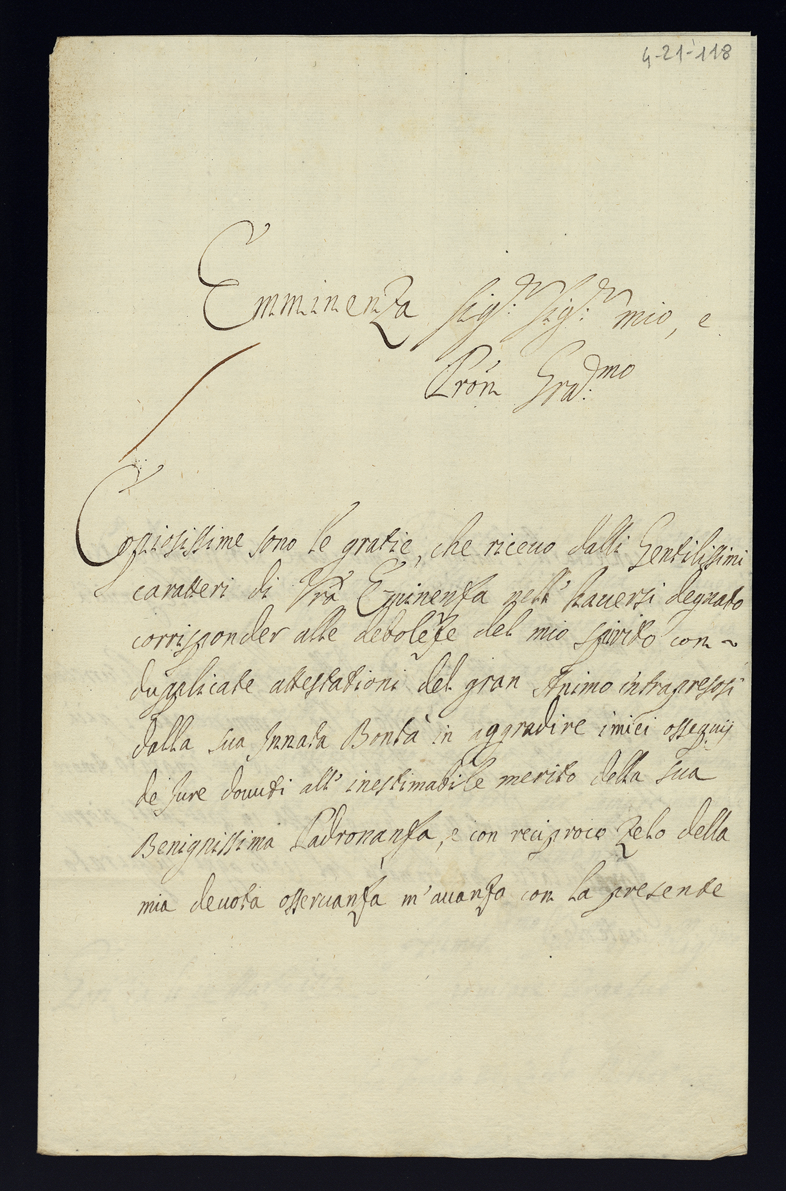 4-21-118
Emminenza Sig.r Sig.r mio, e
Pròn Gra.mo
Copiosissime sono le gratie, che riceuo dalli Gentilissimi
caratteri di Vrã Eminenza nell' hauersi degnato
corrisponder alle debolezze del mio spirito con
duplicate attestationi del gran Animo intrapresosi
dalla sua Innata Bontà in aggradire i miei ossequij
de Jure douuti all' inestimabile merito della sua
Benignissima Padronanza, e con reciproco Zelo della
mia deuota osseruanza m'auanzo con la presente